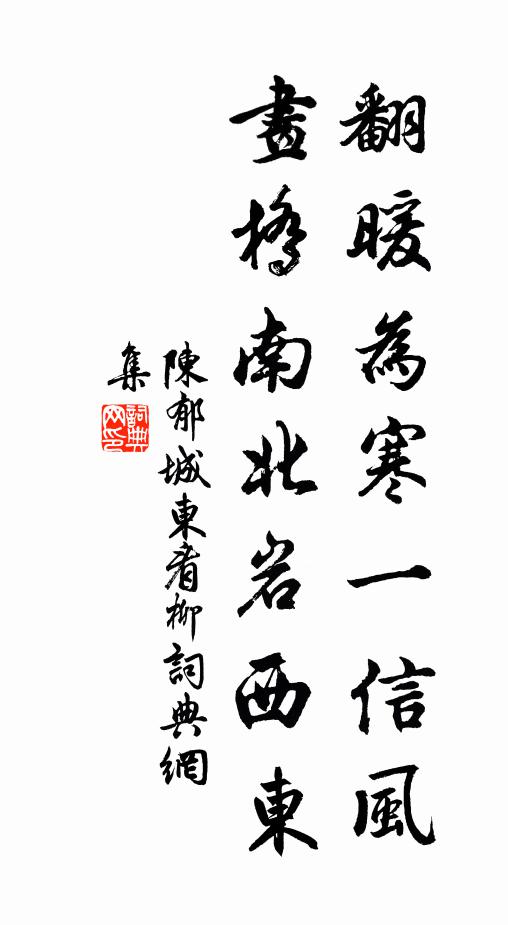 翻暖為寒一信風
畫橋南北岩西東
陳郁城東看柳詞典網
集
詞典网印